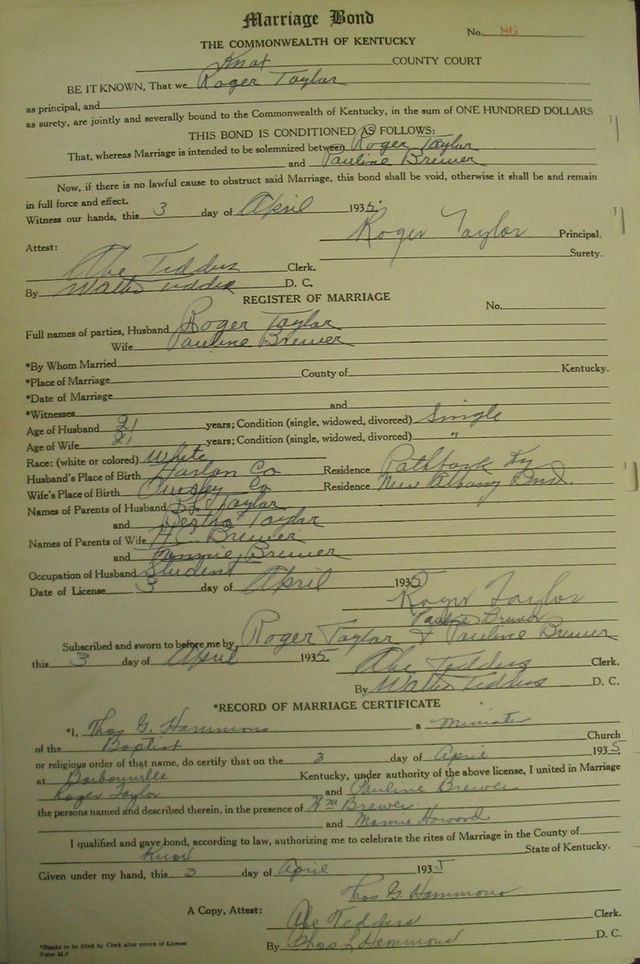 Marriage Bond
No. 86
THE COMMONWEALTH OF KENTUCKY
Knox COUNTY COURT
BE IT KNOWN, That we Roger Taylor
as principal, and
as surety, are jointly and severally bound to the Commonwealth of Kentucky, in the sum of ONE HUNDRED DOLLARS
THIS BOND IS CONDITIONED AS FOLLOWS:
That, whereas Marriage is intended to be solemnized between Roger Taylor
and Pauline Brewer
Now, if there is no lawful cause to obstruct said Marriage, this bond shall be void, otherwise it shall be and remain
in full force and effect.
Witness our hands, this 3 day of April 1935.
Roger Taylor Principal.
Attest: Surety.
Abe Tedders Clerk.
By Walter Tedders D. C.
REGISTER OF MARRIAGE
No.
Full names of parties, Husband Roger Taylor
Wife Pauline Brewer
*By Whom Married
*Place of Marriage County of Kentucky.
*Date of Marriage
*Witnesses and
Age of Husband 21 years; Condition (single, widowed, divorced) Single
Age of Wife 21 years; Condition (single, widowed, divorced) "
Race: (white or colored) White
Husband's Place of Birth Harlan Co Residence Ky
Wife's Place of Birth Owsley Co Residence New Albany Ind.
Names of Parents of Husband Taylor
and Bertha Taylor
Names of Parents of Wife H C Brewer
and Brewer
Occupation of Husband Student
Date of License 3 day of April 1935
Roger Taylor
Pauline Brewer
Subscribed and sworn to before me by Roger Taylor & Pauline Brewer
this 3 day of April 1935.
Abe Tedders Clerk.
By Walter Tedders D. C.
*RECORD OF MARRIAGE CERTIFICATE
*I, Thos G. Hammons a Minister
of the Baptist Church
or religious order of that name, do certify that on the 3 day of April 1935
at Barbourville Kentucky, under authority of the above license, I united in Marriage
Roger Taylor and Pauline Brewer
the persons named and described therein, in the presence of Wm Brewer
and Mamie Howard
I qualified and gave bond, according to law, authorizing me to celebrate the rites of Marriage in the County of
Knox State of Kentucky.
Given under my hand, this 3 day of April 1935
Thos G. Hammons
A Copy, Attest: Abe Tedders Clerk.
By Chas L Hammons D. C.
*Blanks to be filled by Clerk after return of License